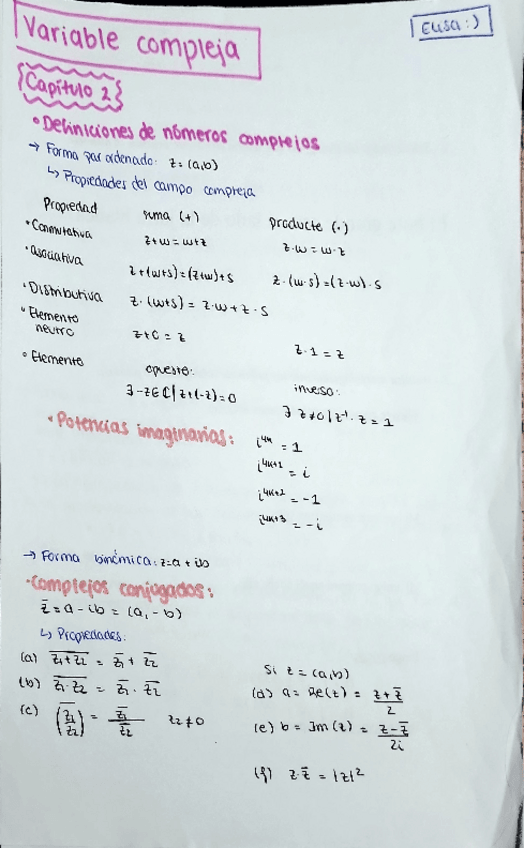 Variable compleja
Elisa :)
Capítulo 2
• Definiciones de números complejos
→ Forma par ordenado: z=(a,b)
↳ Propiedades del campo complejo
Propiedad suma (+) producto (·)
• Conmutativa z+w=w+z z·w=w·z
• asociativa z+(w+s)=(z+w)+s z·(w·s)=(z·w)·s
• Distributiva z·(w+s)=z·w+z·s
• Elemento neutro z+0=z z·1=z
• Elemento opuesto: inverso:
∃ -z∈ℂ | z+(-z)=0 ∃ z≠0 | z⁻¹·z=1
• Potencias imaginarias: i⁴ⁿ = 1
i⁴ⁿ⁺¹ = i
i⁴ⁿ⁺² = -1
i⁴ⁿ⁺³ = -i
→ Forma binómica: z=a+ib
• Complejos conjugados:
z̄=a-ib=(a,-b)
↳ Propiedades:
(a) \overline{z₁+z₂} = z̄₁+z̄₂
(b) \overline{z₁·z₂} = z̄₁·z̄₂
(c) \overline{(z₁/z₂)} = z̄₁/z̄₂ z₂≠0
Si z=(a,b)
(d) a=Re(z)=(z+z̄)/2
(e) b=Im(z)=(z-z̄)/2i
(f) z·z̄=|z|²